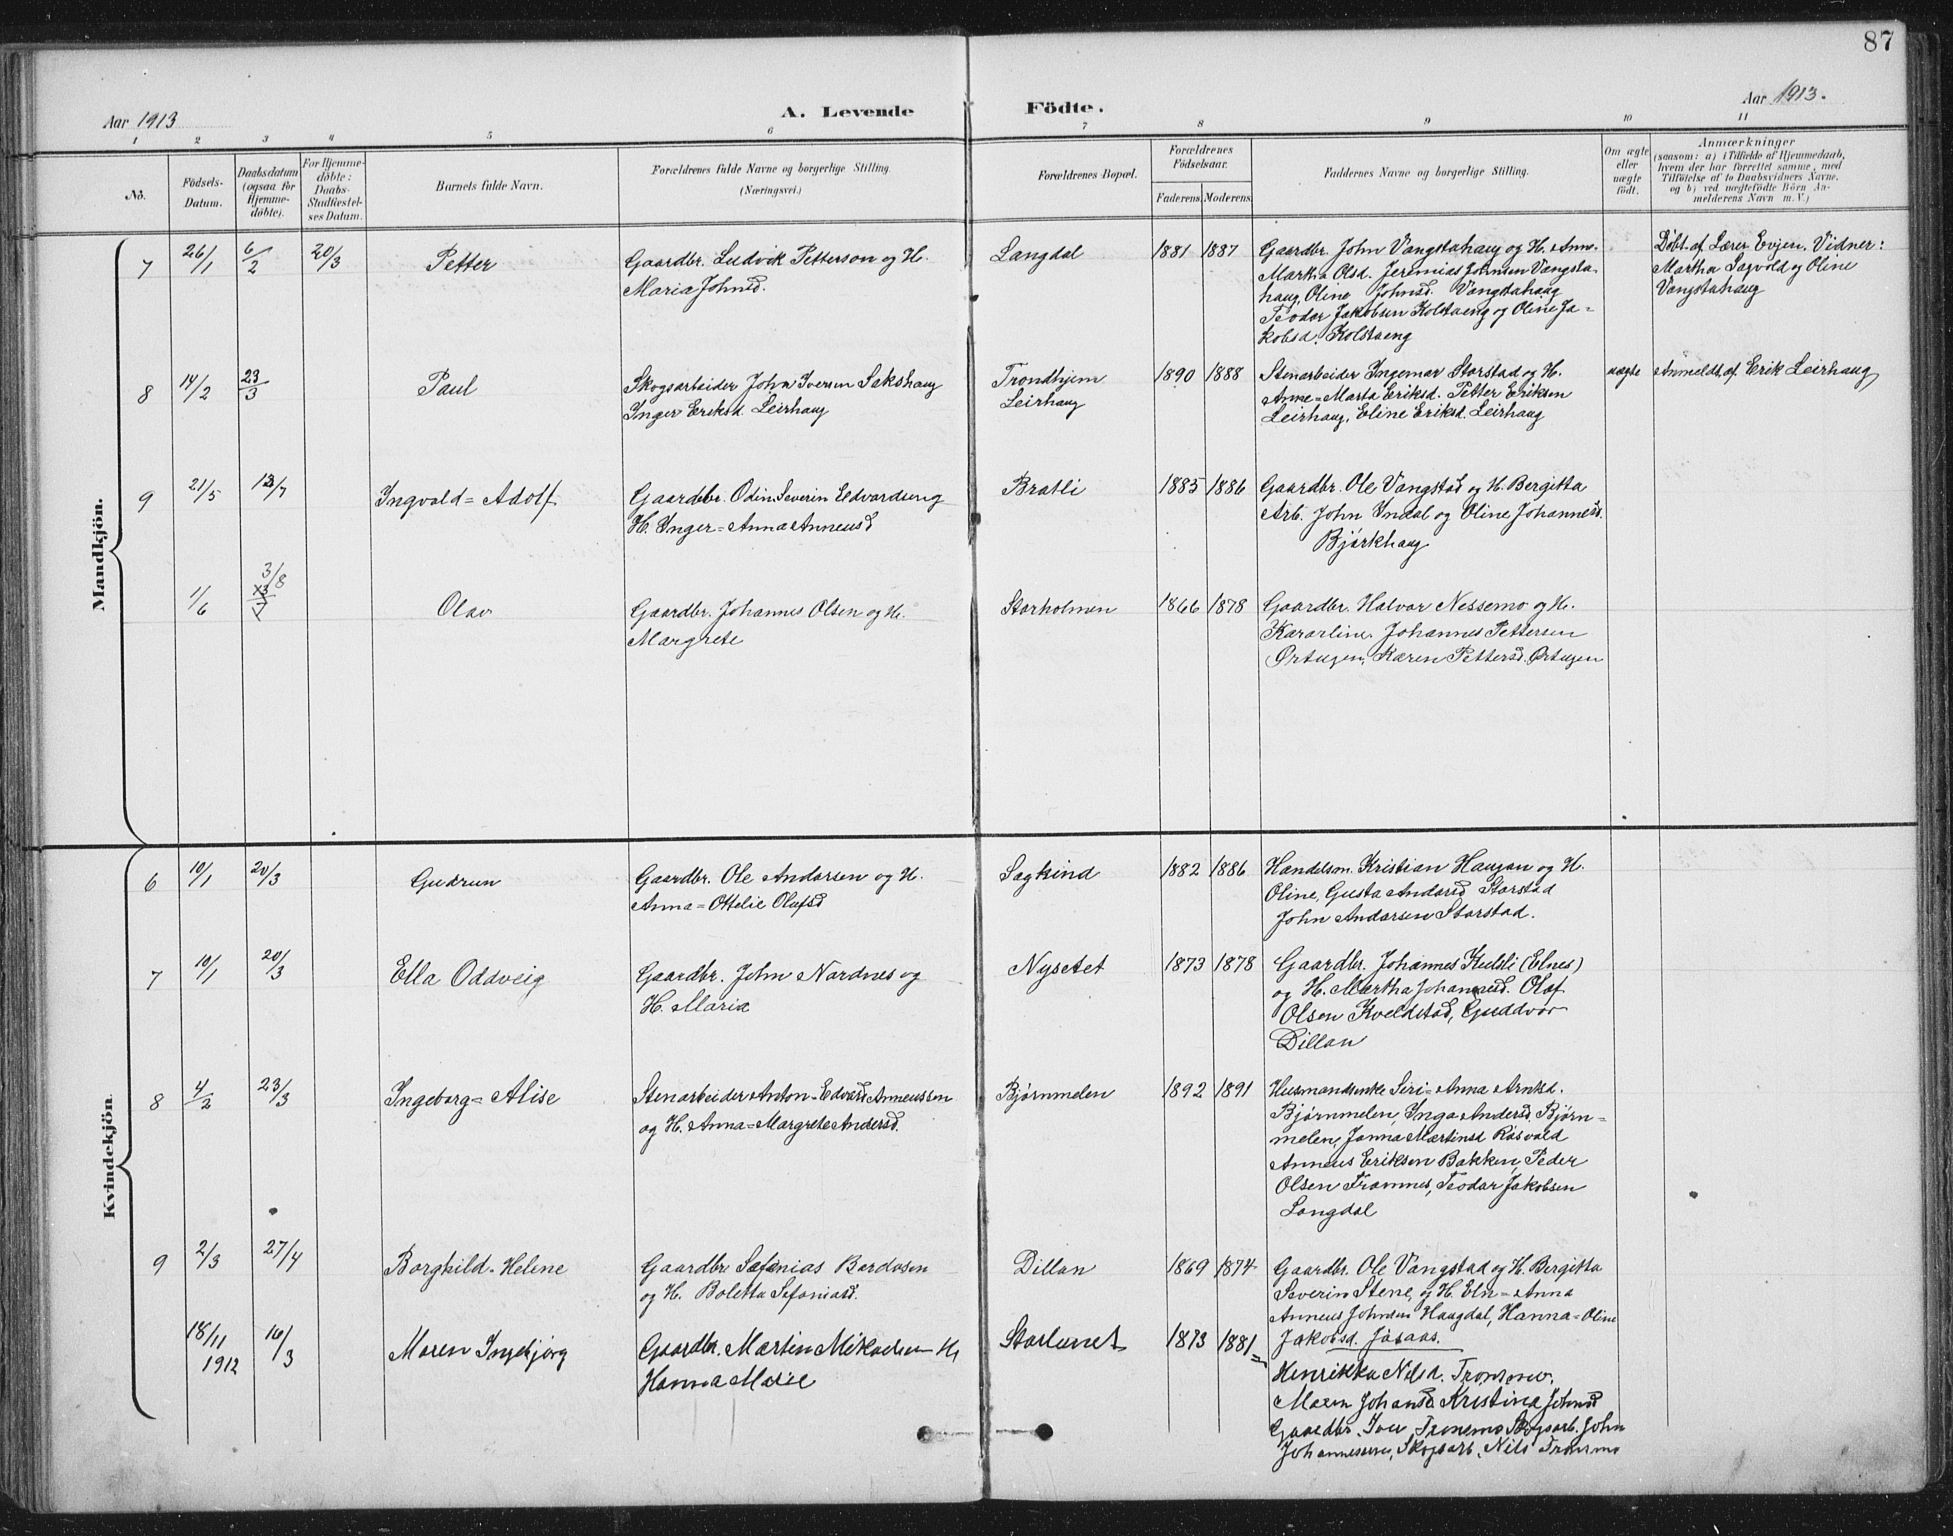 87
Aar 1913
A. Levende Födte.
Aar 1913.
1 2 3 4 5 6 7 8 9 10 11
No.
Födsels-
Datum.
Daabsdatum
(ogsaa for
Hjemme-
döbte).
For Hjemme-
döbte:
Daabs-
Stadfæstel-
ses Datum.
Barnets fulde Navn.
Forældrenes fulde Navne og borgerlige Stilling.
(Næringsvei.)
Forældrenes Bopæl.
Forældrenes
Födselsaar.
Faderens
Moderens
Faddernes Navne og borgerlige Stilling.
Om ægte
eller
uægte
födt.
Anmærkninger
(saasom: a) i Tilfælde af Hjemmedaab,
hvem der har forrettet samme, med
Tilföielse af to Daabsvidners Navne,
og b) ved uægtefödte Börn An-
melderens Navn m. V.)
Mandkjön.
7 26/1 6/2 20/3 Petter
Gaardbr. Ludvik Petterson og H.
Maria Johnsd.
Langdal 1881 1887
Gaardbr. John Vangstahaug og H. Ann-
Martha Olsd. Jeremias Johnsen Vangsta-
haug, Oline Johnsd. Vangstahaug
Teodor Jakobsen Kolstaeng og Oline Ja-
kobsd. Kolstaeng
Døbt af Lærer Evjen. Vidner:
Martha Sagvold og Oline
Vangstahaug
8 14/2 23/3 Paul
Skogsarbeider John Iversen Sakshaug
Inger Eriksd Leirhaug
Trondhjem
Leirhaug
1890 1888
Stenarbeider Ingemar Storstad og H.
Anne=Marta Eriksd. Petter Eriksen
Leirhaug, Eline Eriksd. Leirhaug
uægte
Anmeldt af Erik Leirhaug
9 21/5 13/7 Ingvald=Adolf
Gaardbr. Odin Severin Edvardsen og
H. Inger=Anna Anneusd
Bratli 1885 1886
Gaardbr. Ole Vangstad og H. Bergitta
Arb. John Indal og Oline Johannesd.
Bjørkhaug
1/6 3/8 Olav
Gaardbr. Johannes Olsen og H.
Margrete
Storholmen 1866 1878
Gaardbr. Halvor Nessemo og H.
Kararline. Johannes Pettersen
Ørtugen, Karen Pettersd. Ørtugen
Kvindekjön.
6 10/1 20/3 Gudrun
Gaardbr. Ole Andersen og H.
Anna=Ottelie Olafsd
Sagkind 1882 1886
Handelsm. Kristian Haugan og H.
Oline, Gusta Andersd Storstad
John Andersen Storstad.
7 10/1 20/3 Ella Oddveig
Gaardbr. John Nordnes og
H. Maria
Nysetet 1873 1878
Gaardbr. Johannes Kulsli (Elnes)
og H. Martha Johannesd. Olaf
Olsen Kveldstad, Guddvor
Dillan
8 4/2 23/3 Ingeborg=Alise
Stenarbeider Anton=Edvard Anneussen
og H. Anna=Margrete Andersd.
Bjørnmelen 1892 1891
Husmandsenke Siri=Anna Arntsd.
Bjørnmelen, Inga Andersd Bjørn=
melen, Janna Martinsd Røsvald
Anneus Eriksen Bakken, Peder
Olsen Tramnes, Teodor Jakobsen
Langdal
9 2/3 27/4 Borghild=Helene
Gaardbr Sefanias Bardosen
og H. Boletta Sefaniasd.
Dillan 1869 1874
Gaardbr. Ole Vangstad og H. Bergitta
Severin Stene, og H. Eln=Anna
Anneus Johnsen Haugdal, Hanna=Oline
Jakobsd. Jøsaas.
18/11 1912 16/3 Maren Ingebjørg
Gaardbr. Martin Mikalsen H
Hanna Marie
Storlunet 1873 1881
Henrikka Nilsd. Tronsmo.
Maren Johansd Kristina Johnsd
Gaardbr. Iver Tronsmo Skogsarb. John
Johannessen, Skogsarb. Nils Tronsmo